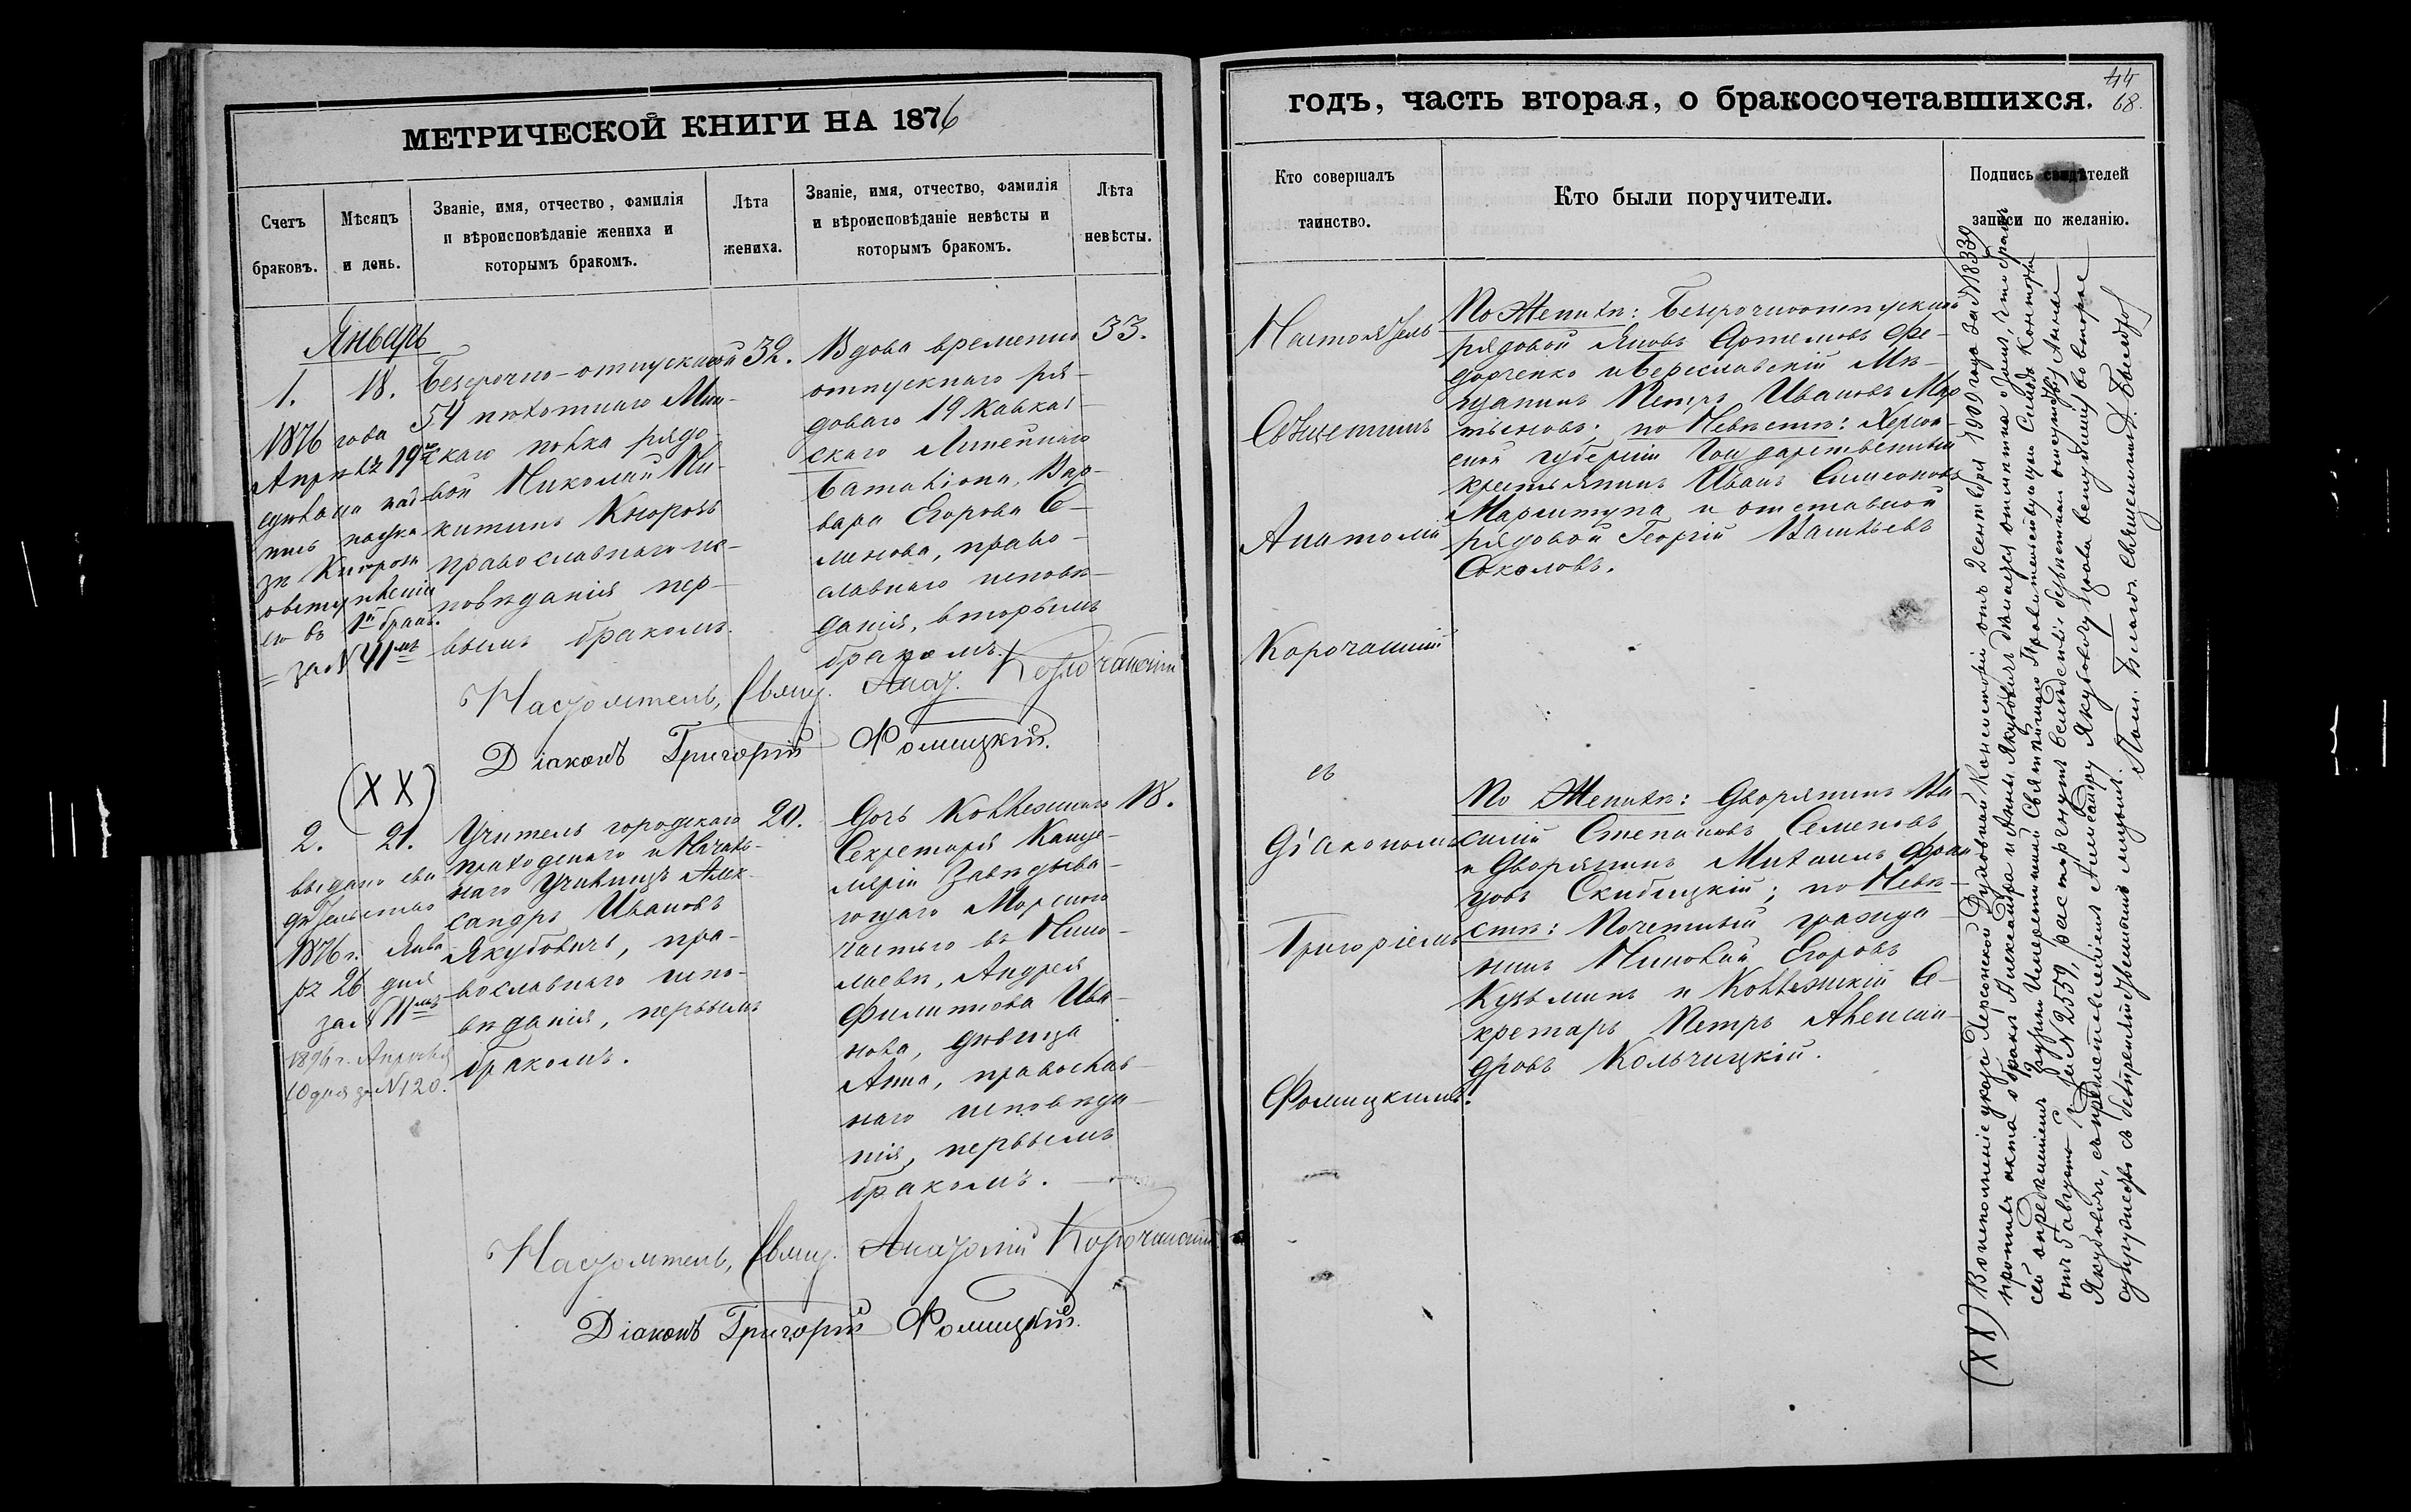 МЕТРИЧЕСКОЙ КНИГИ НА 1876
Счетъ браковъ.
Мѣсяцъ и день.
Званіе, имя, отчество, фамилія
и вѣроисповѣданіе жениха и
которымъ бракомъ.
Лѣта жениха.
Званіе, имя, отчество, фамилія
и вѣроисповѣданіе невѣсты и
которымъ бракомъ.
Лѣта невѣсты.
Январь
1.
18.
1876 года
Апрѣля 19го
за № 41мъ
Безсрочно-отпускной
54 пѣхотнаго Мин-
скаго полка рядо-
вой Николай Ни-
китинъ
православнаго ис-
повѣданія пер-
вымъ бракомъ.
32.
Вдова временно
отпускнаго ря-
доваго 19 Кавказ-
скаго Линейнаго
Баталіона, Вар-
вара Егорова Се-
менова, право-
славнаго исповѣ-
данія, вторымъ
бракомъ.
33.
Настоятель, Свящ. Анат. Корочанскій
Діаконъ Григорій Фомицкій.
(X X)
2.
21.
выдано сви
дѣтельство
1876 г. Янва
ря 26 дня
за № 11мъ
1896 г. Апрѣля
10 дня за № 120.
Учитель городскаго
приходскаго и Началь-
наго Училищъ Алек-
сандръ Ивановъ
Якубовичъ, пра-
вославнаго испо-
вѣданія, первымъ
бракомъ.
20.
Дочь Коллежскаго
Секретаря Канце-
ляріи Завѣдыва-
ющаго Морскою
частью въ Нико-
лаевѣ, Андрея
Филипова Ива-
нова, дѣвица
Анна, православ-
наго исповѣда-
нія, первымъ
бракомъ.
18.
Настоятель, Свящ. Анатолій Корочанскій
Діаконъ Григорій Фомицкій.
годъ, часть вторая, о бракосочетавшихся.
44
68.
Кто совершалъ
таинство.
Кто были поручители.
Подпись свидѣтелей
записи по желанію.
Настоятель
Священникъ
Анатолій
Корочанскій
съ
Діакономъ
Григоріемъ
Фомицкимъ.
По Женихѣ: Безсрочноотпускной
рядовой Яковъ Артемовъ Фе-
дорченко и Бериславскій Мѣ-
щанинъ Петръ Ивановъ Мар
тыновъ; по Невѣстѣ: Херсон-
ской губерніи Государственный
крестьянинъ Иванъ Симеоновъ
и отставной
рядовой Георгій Васильевъ
Соколовъ.
По Женихѣ: Дворянинъ Ва-
силій Степановъ Семеновъ
и Дворянинъ Михаилъ Фран
цовъ Скибицкій; по Невѣ-
стѣ: Почетный гражда-
нинъ Николай Егоровъ
Кузьминъ и Коллежскій Се-
кретарь Петръ Алексан-
дровъ Кольчицкій.
(X X) Во исполненіе указа Херсонской Духовной Консисторіи отъ 2 сентября 1909 года за № 18339
противъ акта о бракѣ Александра и Анны Якубовичъ дѣлается отмѣтка о томъ, что бракъ
сей опредѣленіемъ
отъ 5 августа за № 2559, расторгнутъ вслѣдствіе безвѣстнаго отсутствія Анны
Якубовичъ, съ предоставленіемъ Александру Якубовичу права вступленія во второе
супружество съ безпрепятственнымъ лицомъ.